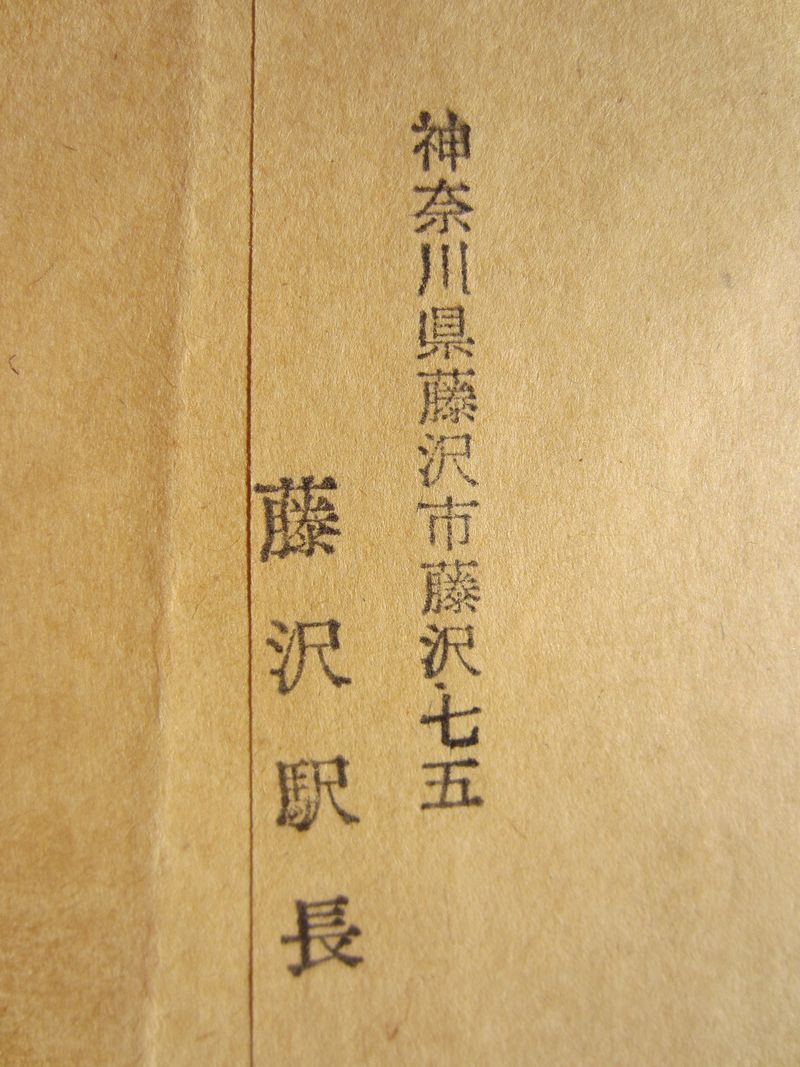 神奈川県藤沢市藤沢七五
藤沢駅長